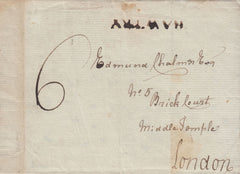 6
Edmund Chalmer Esqr
No 5
Brick Court
Middle Temple
London